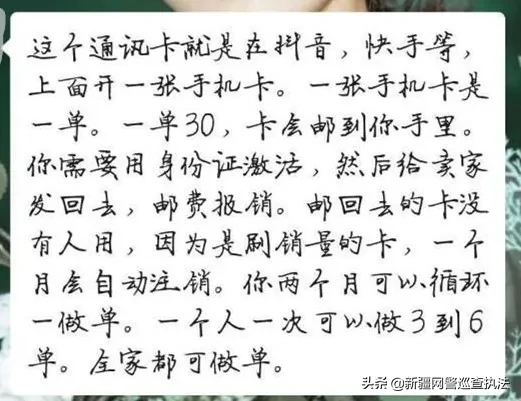 这个通讯卡就是在抖音，快手等，
上面开一张手机卡。一张手机卡是
一单。一单30，卡会邮到你手里。
你需要用身份证激活，然后给卖家
发回去，邮费报销。邮回去的卡没
有人用，因为是刷销量的卡，一个
月会自动注销。你两个月可以循环
一做单。一个人一次可以做3到6
单。全家都可做单。
头条 @新疆网警巡查执法